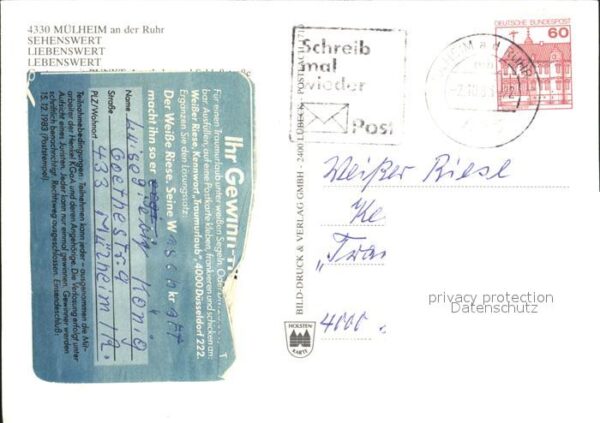 4330 MÜLHEIM an der Ruhr
SEHENSWERT
LIEBENSWERT
LEBENSWERT
Schreib
mal
wieder
Post
DEUTSCHE BUNDESPOST
60
Ihr Gewinn-
Für einen Traumurlaub unter weißen Segeln,
bar. Ausfüllen, auf eine Postkarte kleben, frankieren und schicken an:
Weißer Riese, Kennwort „Traumurlaub“, 4000 Düsseldorf 222.
Ergänzen Sie den Lösungssatz:
Der Weiße Riese. Seine W
macht ihn so er
Name
König
Straße Goethestr. 9
PLZ/Wohnort 433 Mülheim
Teilnahmebedingungen: Teilnehmen kann jeder – ausgenommen die Mit-
arbeiter der Henkel KGaA und deren Angehörige. Die Verlosung erfolgt unter
Aufsicht eines Juristen. Jeder kann nur einmal gewinnen. Gewinner werden
schriftlich benachrichtigt. Rechtsweg ausgeschlossen. Einsendeschluß:
15.12.1983 (Poststempel).
BILD-DRUCK & VERLAG GMBH · 2400 LÜBECK
Weißer Riese
Ke
„Trau
4000
privacy protection
Datenschutz
HOLSTEN
KARTE